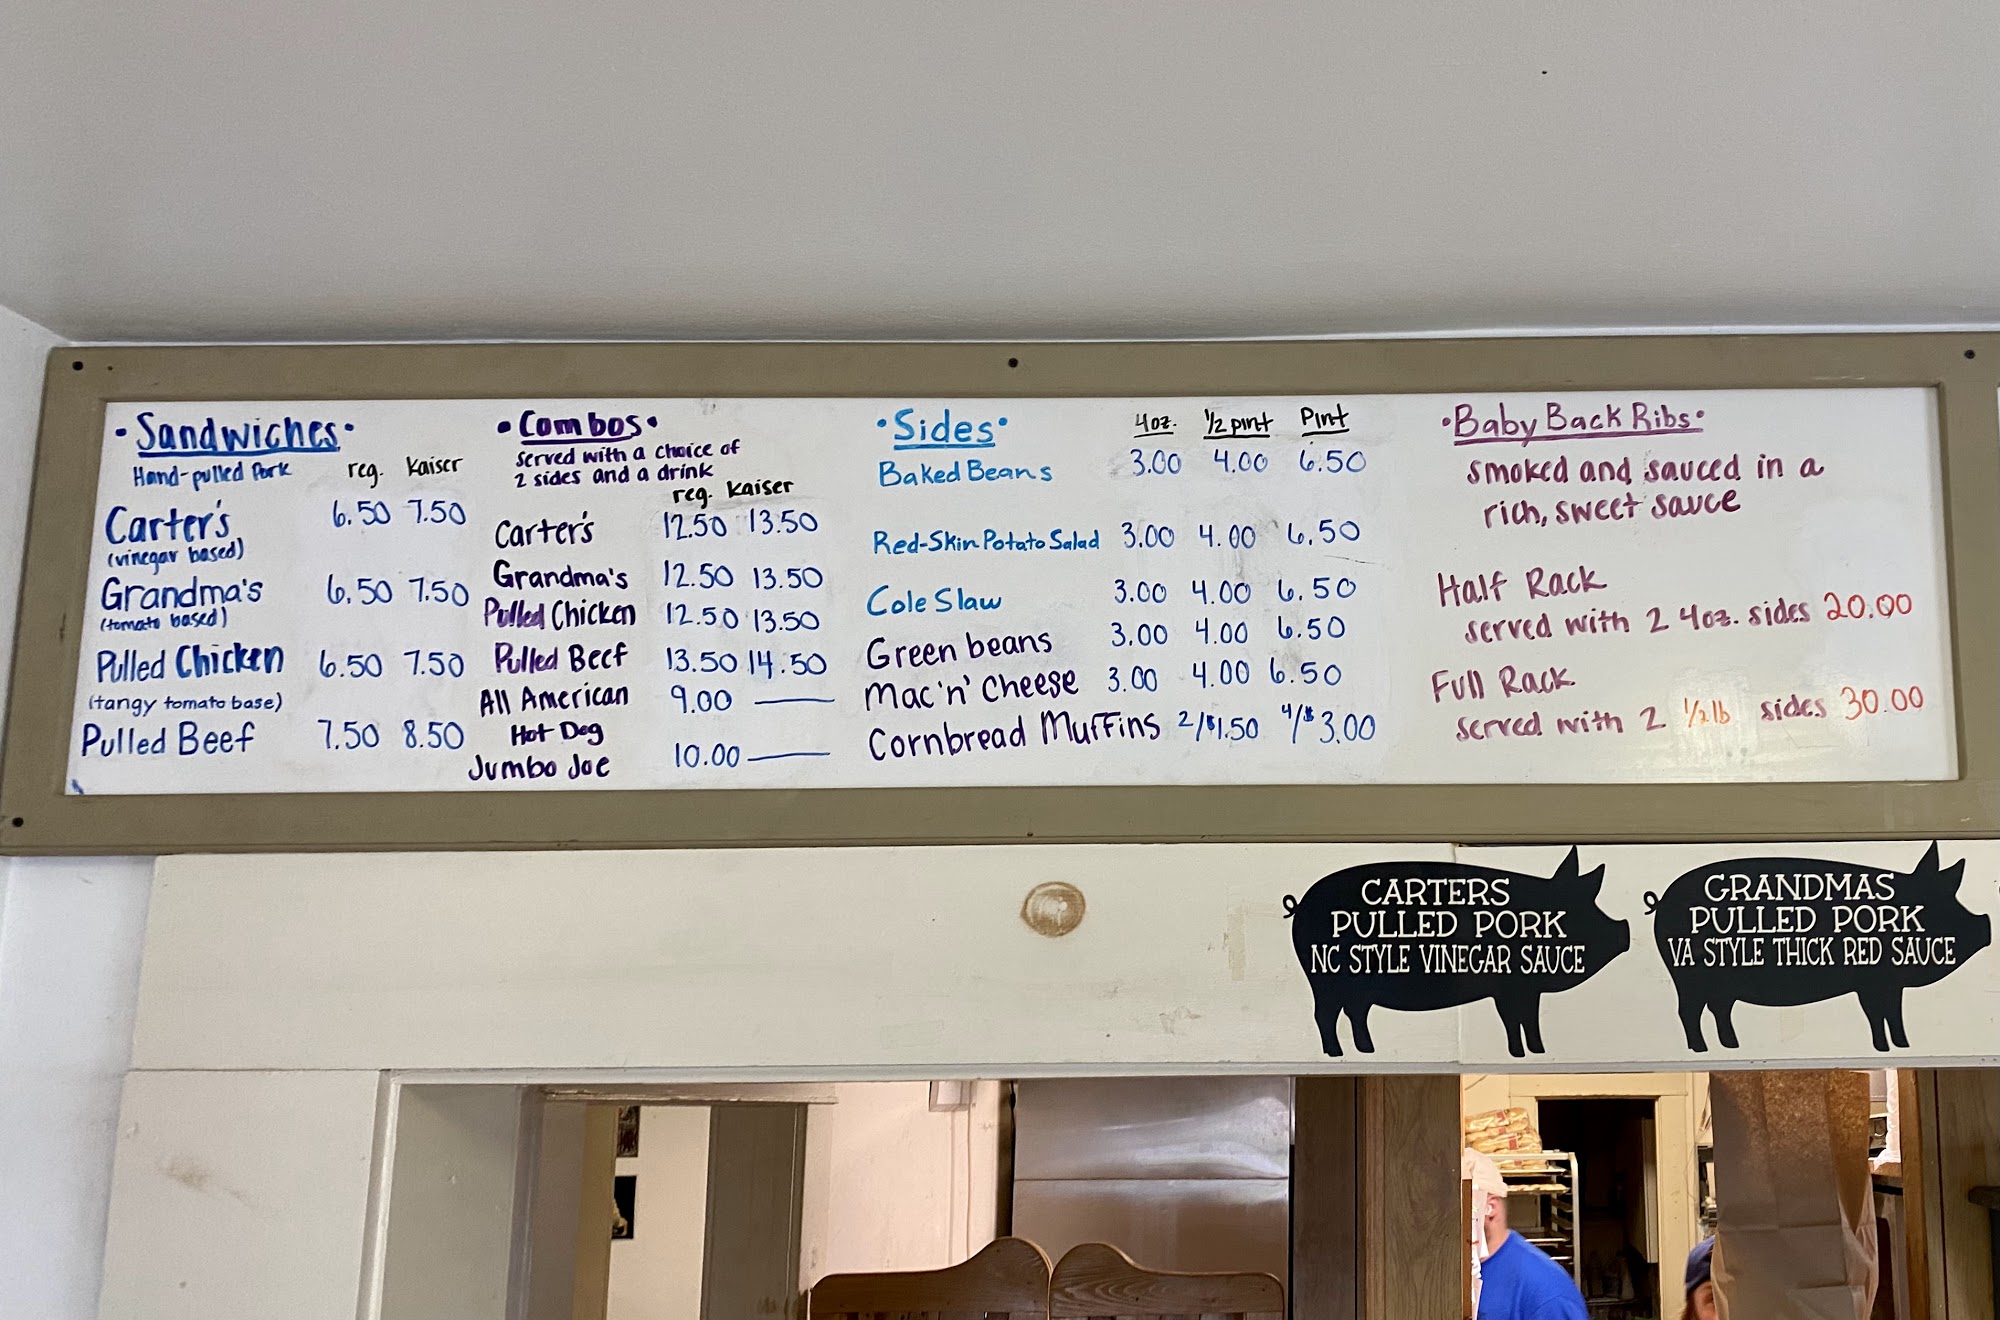 • Sandwiches •
Hand-pulled Pork reg. Kaiser
Carter's 6.50 7.50
(vinegar based)
Grandma's 6.50 7.50
(tomato based)
Pulled Chicken 6.50 7.50
(tangy tomato base)
Pulled Beef 7.50 8.50
• Combos •
served with a choice of
2 sides and a drink
reg. Kaiser
Carter's 12.50 13.50
Grandma's 12.50 13.50
Pulled Chicken 12.50 13.50
Pulled Beef 13.50 14.50
All American 9.00 ——
Hot Dog
Jumbo Joe 10.00 ——
• Sides • 4oz. 1/2 pint Pint
Baked Beans 3.00 4.00 6.50
Red-Skin Potato Salad 3.00 4.00 6.50
Cole Slaw 3.00 4.00 6.50
Green beans 3.00 4.00 6.50
Mac 'n' Cheese 3.00 4.00 6.50
Cornbread Muffins 2/$1.50 4/$3.00
• Baby Back Ribs •
smoked and sauced in a
rich, sweet sauce
Half Rack
served with 2 4oz. sides 20.00
Full Rack
served with 2 1/2 lb sides 30.00
CARTERS
PULLED PORK
NC STYLE VINEGAR SAUCE
GRANDMAS
PULLED PORK
VA STYLE THICK RED SAUCE